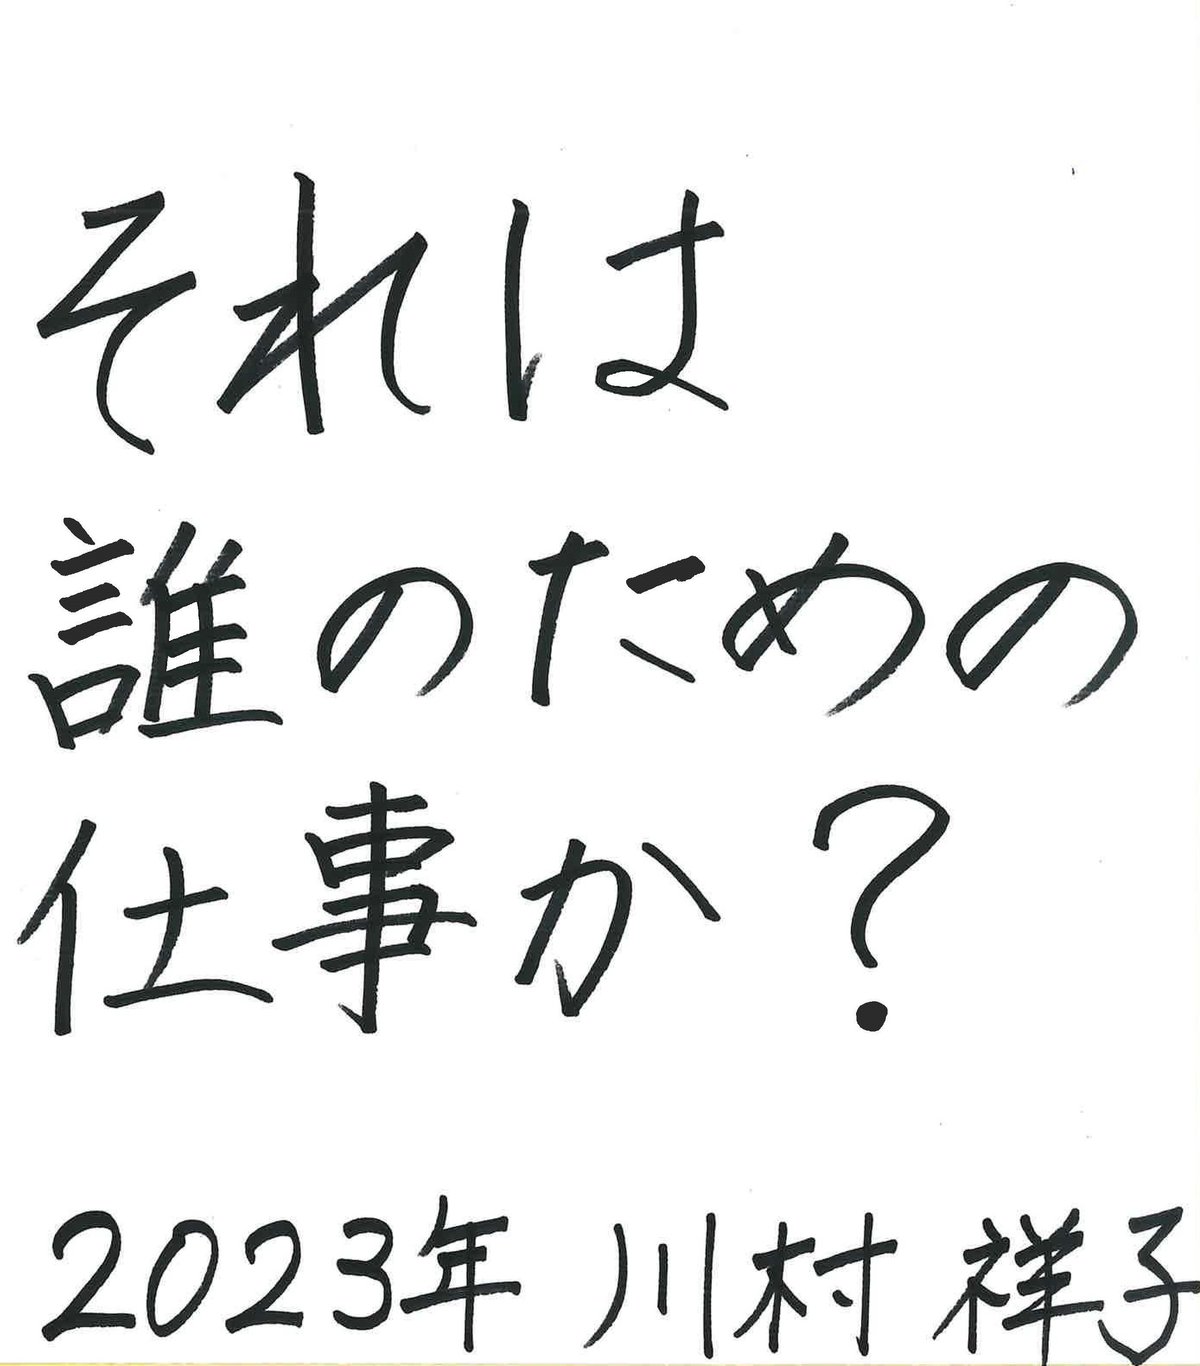 それは
誰のための
仕事か?
2023年 川村 祥子